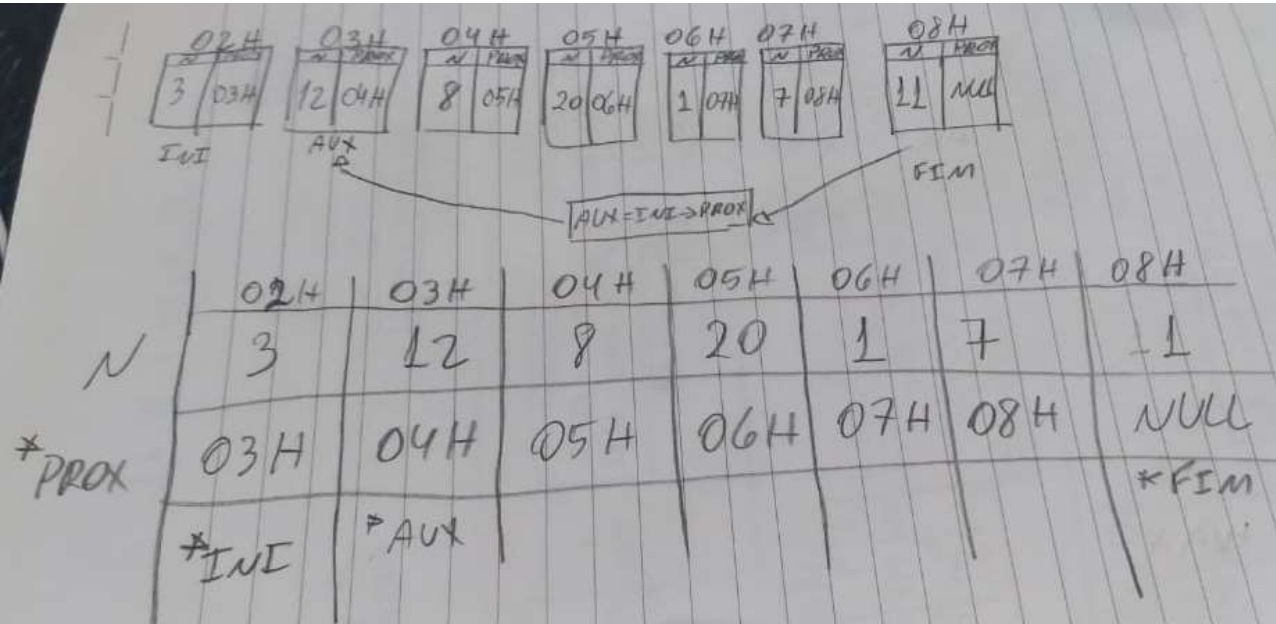 02H 03H 04H 05H 06H 07H 08H
N PROX N PROX N PROX N PROX N PROX N PROX N PROX
3 03H 12 04H 8 05H 20 06H 1 07H 7 08H 11 NULL
INI AUX FIM
AUX=INI->PROX
02H 03H 04H 05H 06H 07H 08H
N 3 12 8 20 1 7 -1
*PROX 03H 04H 05H 06H 07H 08H NULL
*INI *AUX *FIM